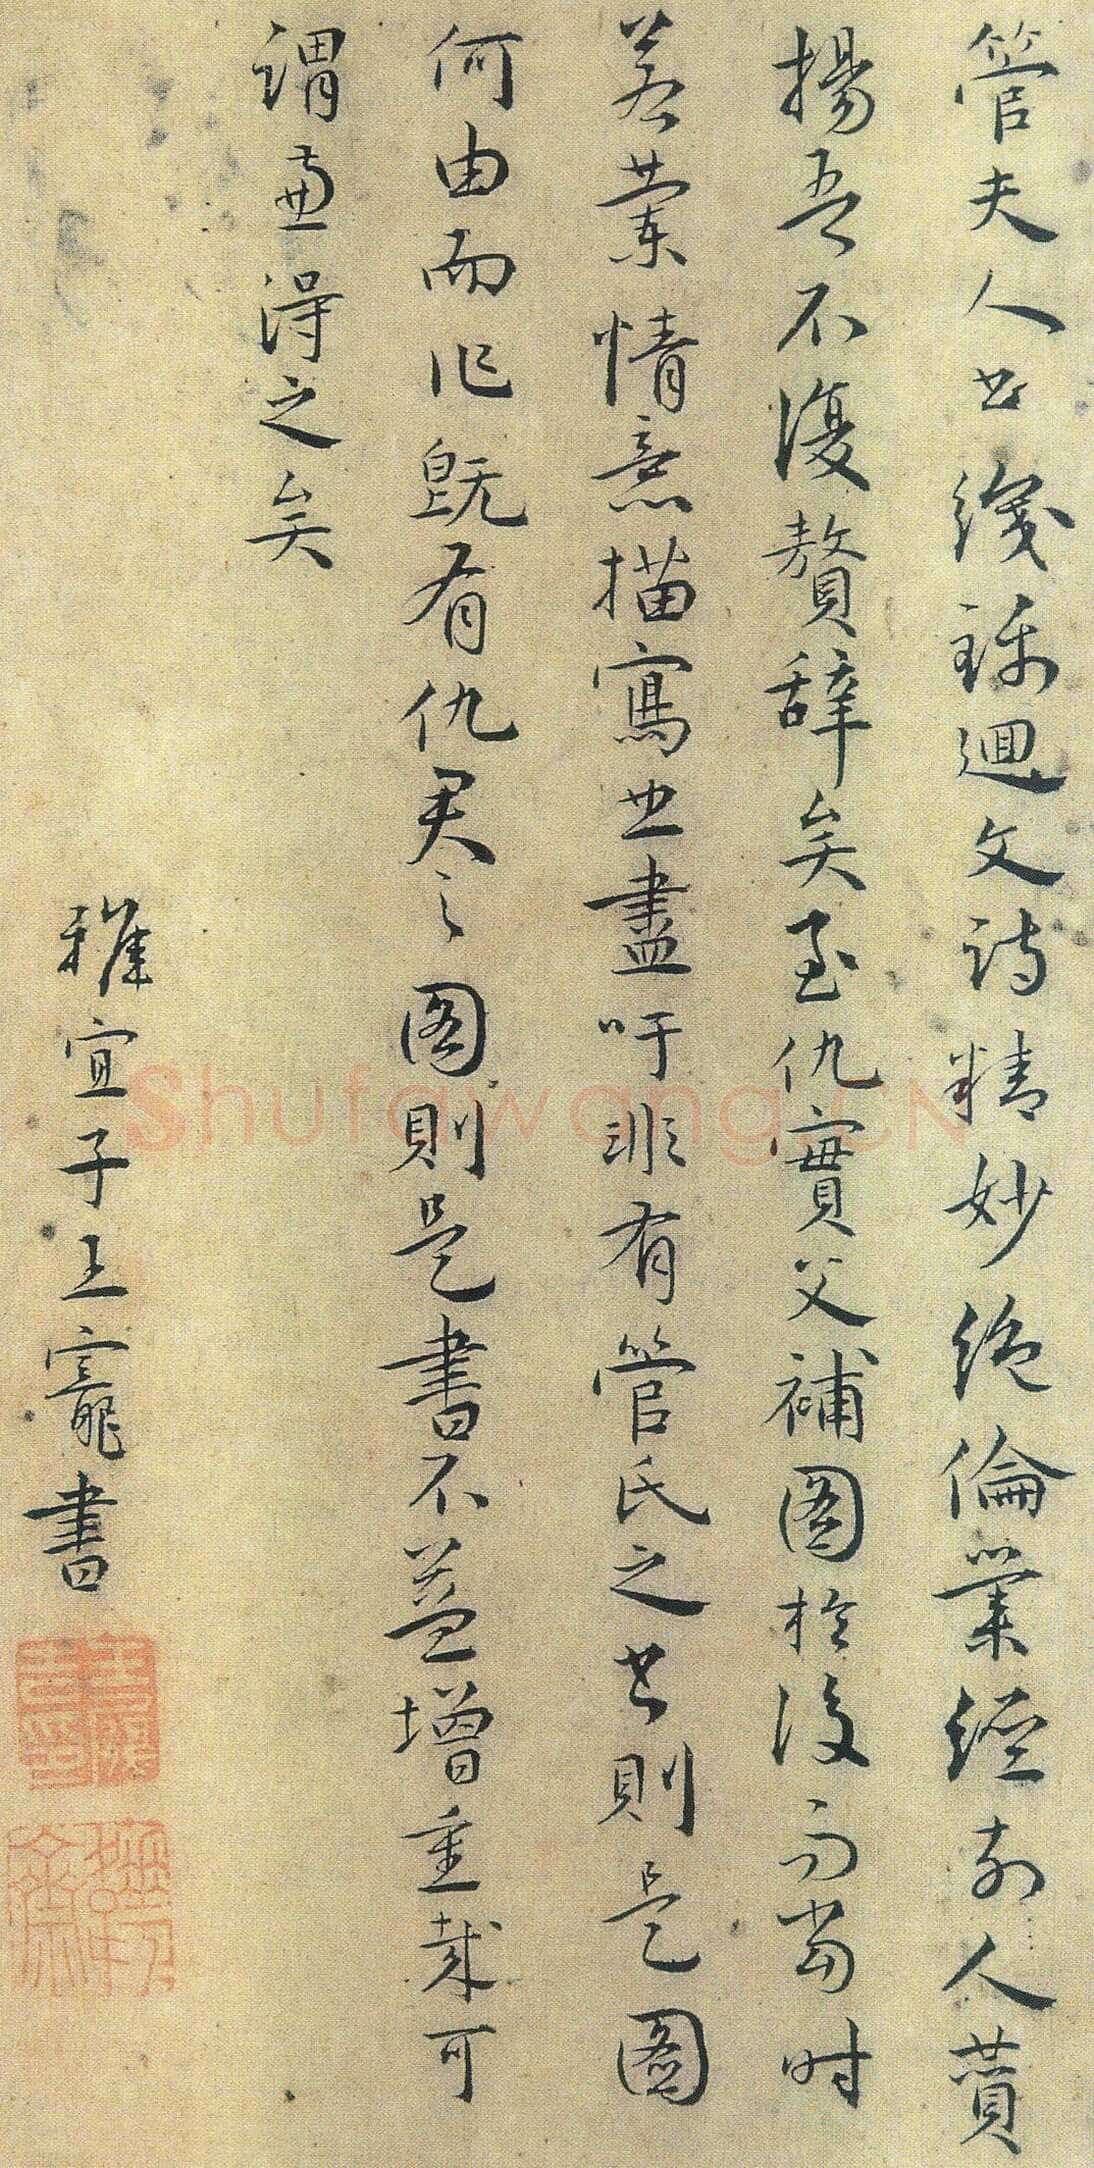 管夫人书織錦迴文詩精妙絶倫業經前人賛
揚吾不復贅辭矣至仇實父補图於後而當時
若蘭情意描寫也盡吁非有管氏之书則是圖
何由而作既有仇君之图則是書不益增重哉可
謂兩得之矣
雅宜子王寵書
Shufawang.CN